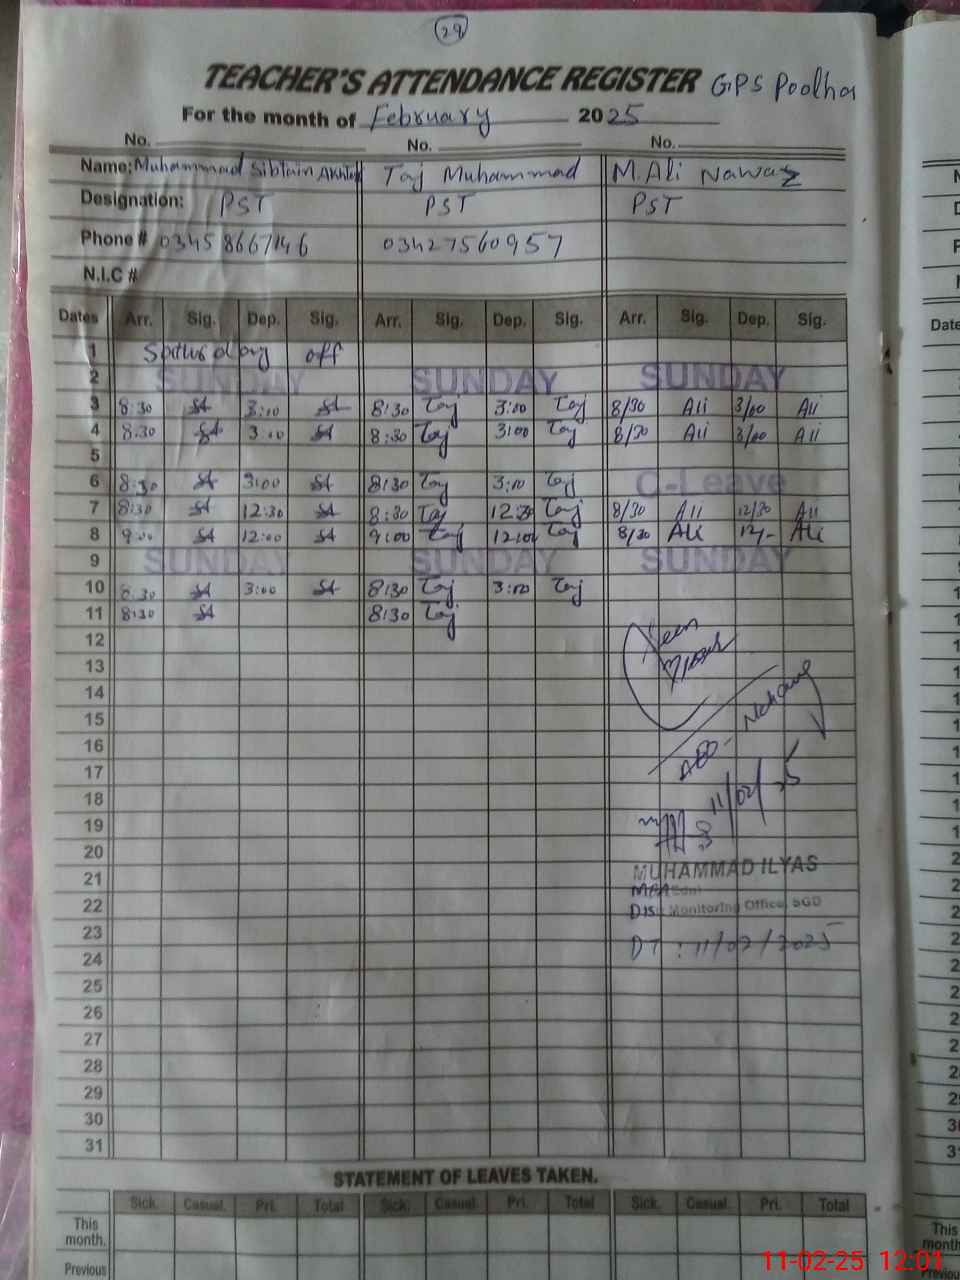 29
TEACHER'S ATTENDANCE REGISTER GPS Poolha
For the month of February 2025
No. No. No.
Name: Muhammad Sibtain Akhtar Taj Muhammad M. Ali Nawaz
Designation: PST PST PST
Phone # 03458667146 03427560957
N.I.C #
Dates Arr. Sig. Dep. Sig. Arr. Sig. Dep. Sig. Arr. Sig. Dep. Sig.
1 Saturday off
2 SUNDAY SUNDAY SUNDAY
3 8:30 3:00 8:30 Taj 3:00 Taj 8/30 Ali 3/00 Ali
4 8:30 3:00 8:30 Taj 3:00 Taj 8/30 Ali 3/00 Ali
5
6 8:30 3:00 8:30 Taj 3:00 Taj C-Leave
7 8:30 12:30 8:30 Taj 12:30 Taj 8/30 Ali 12/30 Ali
8 9:00 12:00 9:00 Taj 12:00 Taj 8/30 Ali 12/- Ali
9 SUNDAY SUNDAY SUNDAY
10 8:30 3:00 8:30 Taj 3:00 Taj
11 8:30 8:30 Taj
12 Seen
13
14
15
16 AEO-
17
18 11/02/25
19
20
21 MUHAMMAD ILYAS
MEA
22 Monitoring Office, SGD
23 DT: 11/02/2025
24
25
26
27
28
29
30
31
STATEMENT OF LEAVES TAKEN.
Sick. Casual. Pri. Total Sick. Casual. Pri. Total Sick. Casual. Pri. Total
This month.
Previous
Date
This month
11-02-25 12:01